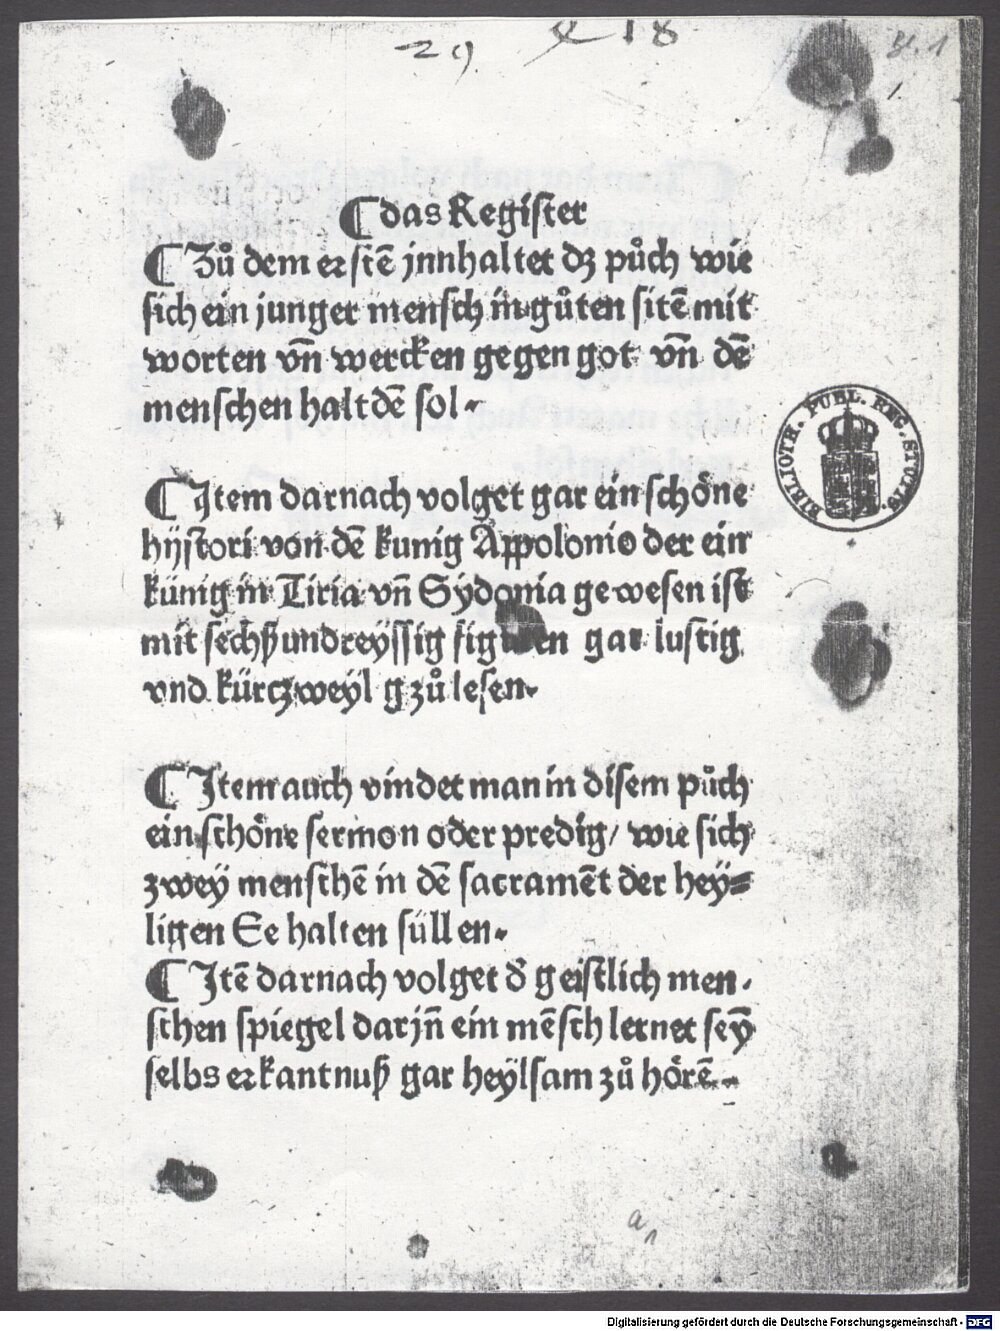 29 18 Bl. 1
1
¶ das Register
¶ Zů dem erstē jnnhaltet dz půch wie
sich ein junger mensch in gůten sitē mit
worten vn̄ wercken gegen got vn̄ dē
menschen haltdē sol.
¶ Jtem darnach volget gar ein schöne
hÿstori von dē kunig Appolonio der ein
künig in Tiria vn̄ Sydonia gewesen ist
mit sechßundreyssig figuren gar lustig
vnd kürczweyl g zů lesen.
¶ Jtem auch vindet man in disem půch
ein schöne sermon oder predig/ wie sich
zwey menschē in dē sacramēt der hey⸗
ligen Ee halten süllen.
¶ Jtē darnach volget d' geistlich men⸗
schen spiegel darjn̄ ein mēsch lernet seȳ
selbs erkantnuß gar heylsam zů hörē.
BIBLIOTH. PUBL. REG.
a1
Digitalisierung gefördert durch die Deutsche Forschungsgemeinschaft - DFG